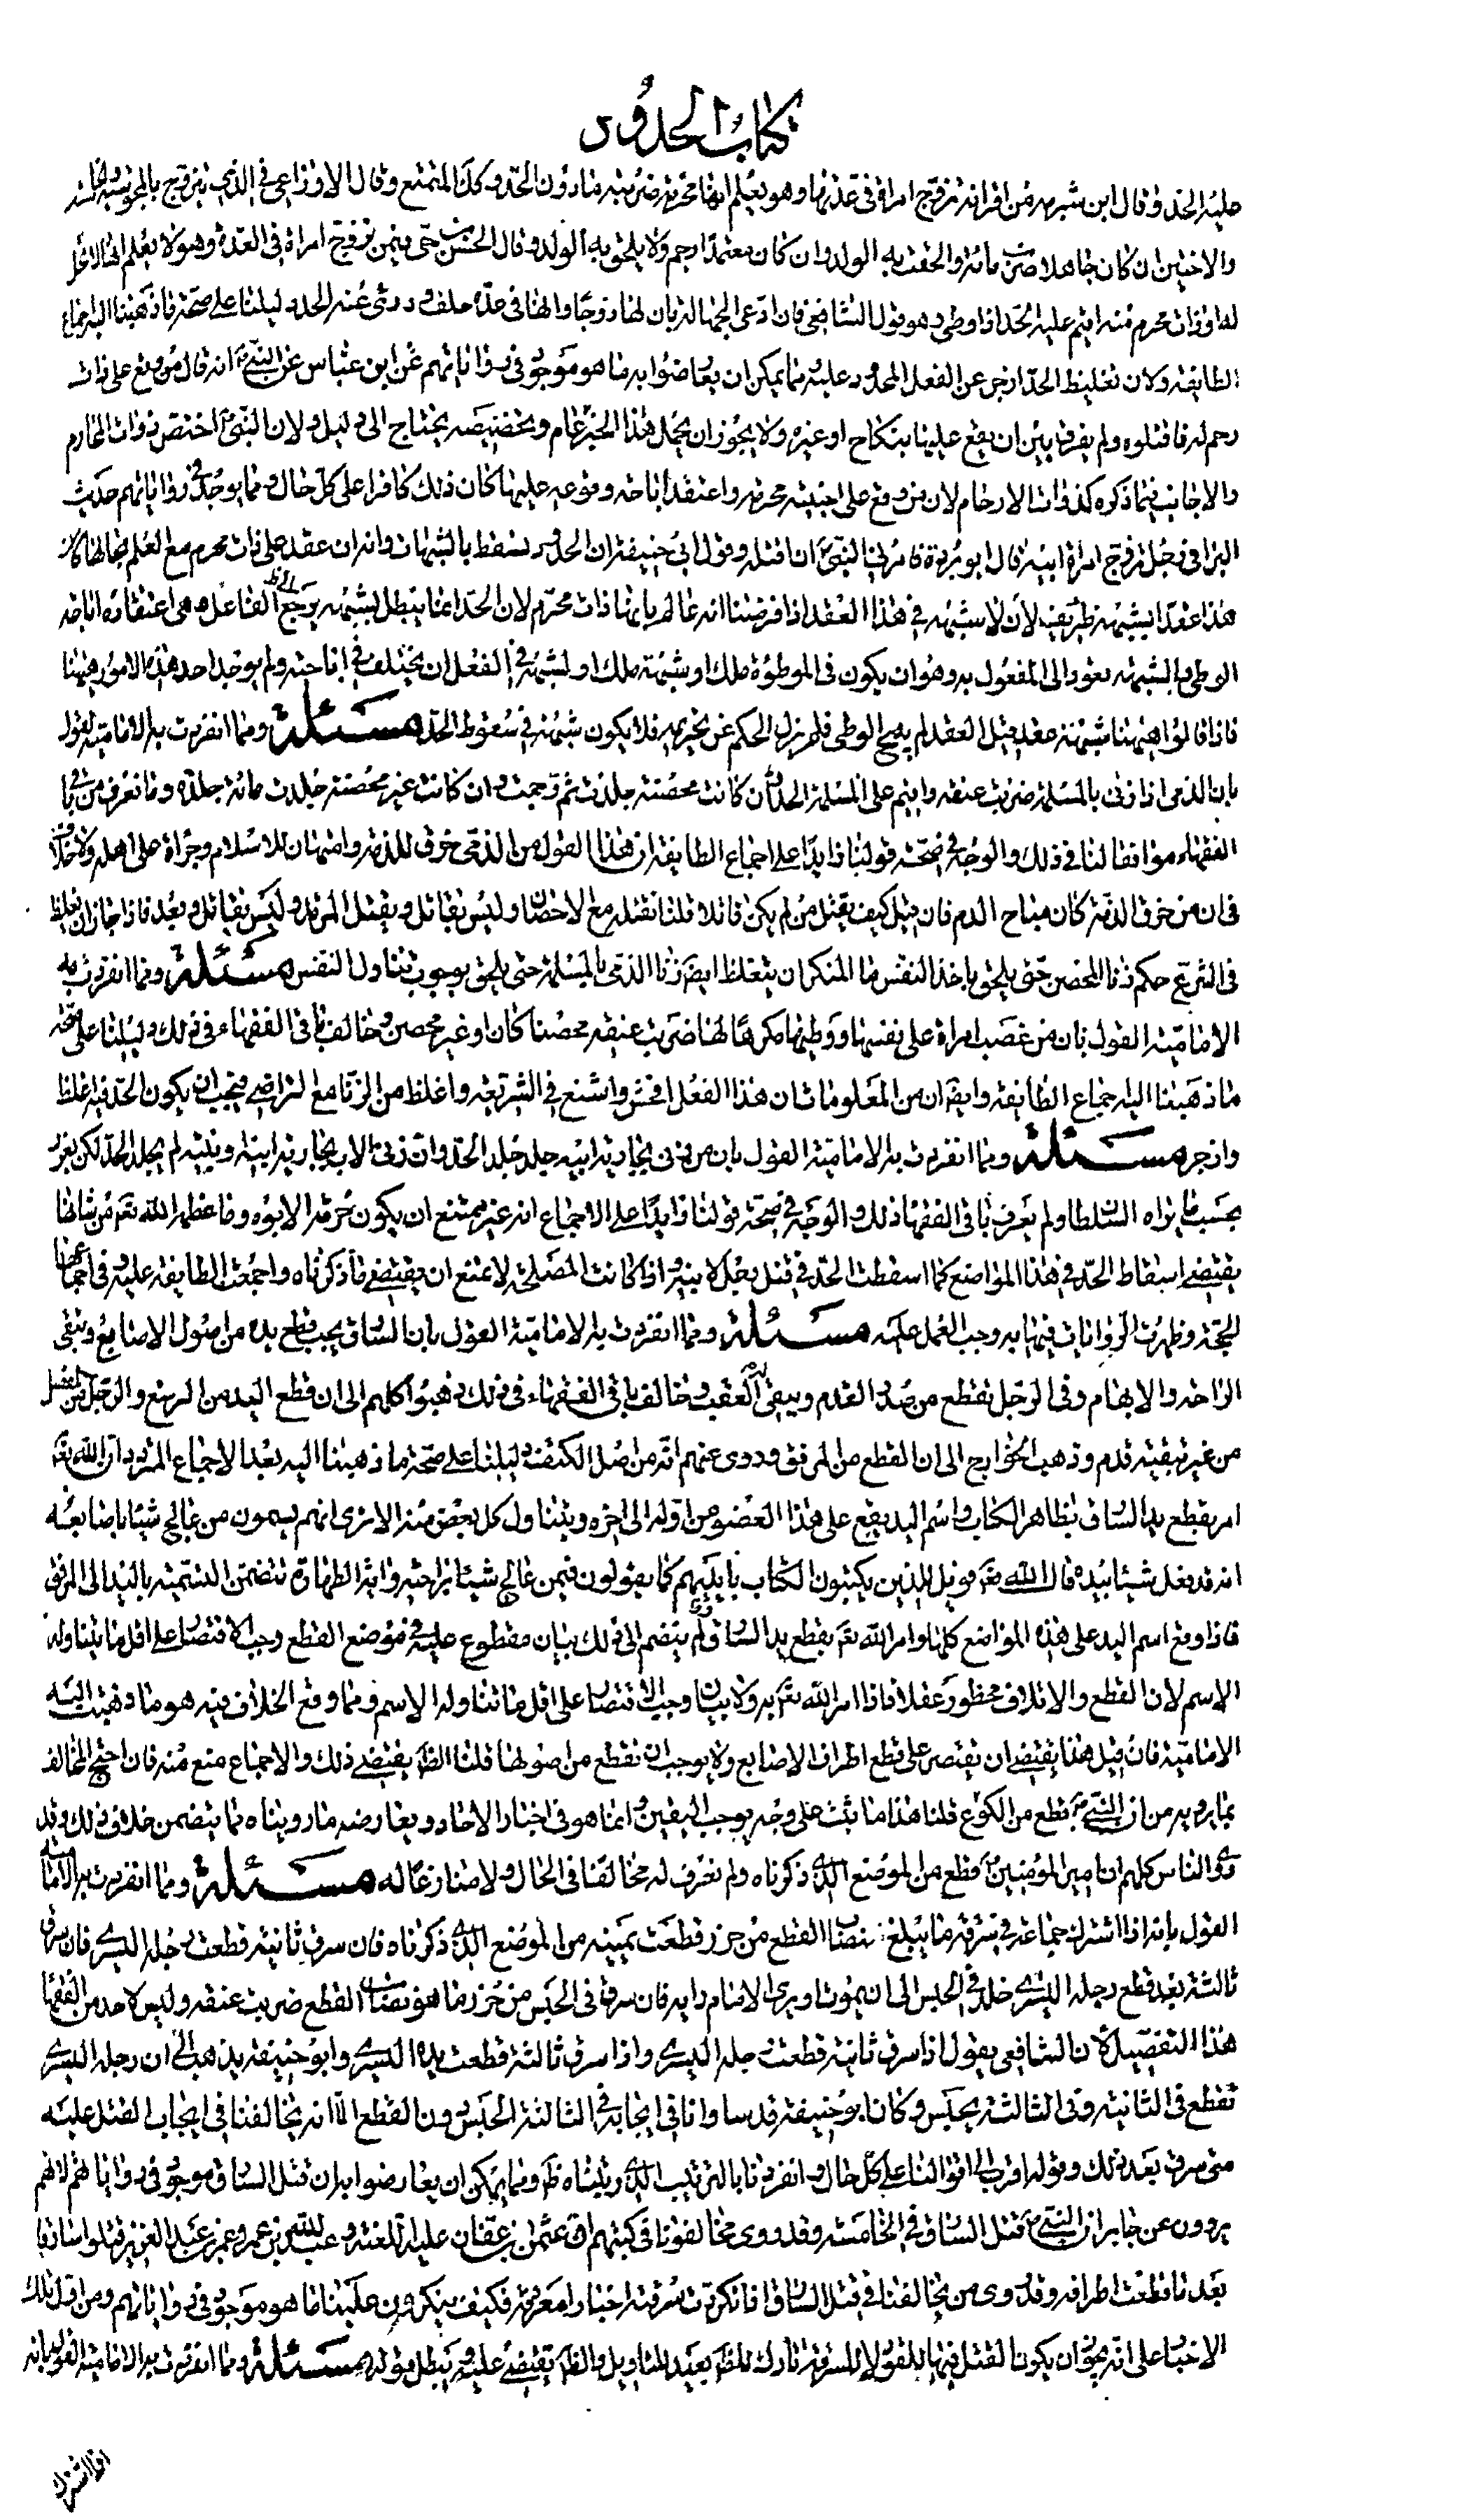 كتاب الحدود
عليه الحد وقال ابن شبرمة من اقر انه تزوج امراة في عدتها وهو يعلم انها محرمة ضربته ما دون الحد وكذا المتمتع وقال الاوزاعي في الذي يتزوج بالمجوسية والخامسة
والاختين ان كان جاهلا ضرب مائة والحقت به الولد وان كان متعمدا رجم ولا يلحق به الولد وقال الحسن بن حي فيمن تزوج امراة في العدة وهو لا يعلم انها لا تحل
له او ذات محرم منه اقيم عليه الحد اذا وطئ وهو قول الشافعي فان ادعى الجهالة بان لها زوجا وانها في عدة حلف ودرئ عنه الحد دليلنا على صحة ما ذهبنا اليه اجماع
الطايفة ولان تغليظ الحد ازجر عن الفعل المحدود عليه ومما يمكن ان يعارضوا به ما هو موجود في رواياتهم عن ابن عباس عن النبي ص انه قال من وقع على ذات
رحم له فاقتلوه ولم يفرق بين ان يقع عليها بنكاح او غيره ولا يجوز ان يحمل هذا الخبر عام وتخصيصه يحتاج الى دليل ولان النبي ص اختص ذوات المحارم
والاجانب فيما ذكره كذوات الارحام لان من وقع على اجنبية محرمة واعتقد اباحة وقوعه عليها كان ذلك كافرا على كل حال ومما يوجد في رواياتهم حديث
البرا في رجل تزوج امراة ابيه قال ابو بردة فامرني النبي ص ان اقتله وقول ابي حنيفة ان الحدود تسقط بالشبهات وانه ان عقد على ذات محرم مع العلم بحالها كان
هذا عقدا بشبهة طريفة لان لا شبهة في هذا العقد اذا فرضنا انه عالم بانها ذات محرم لان الحد انما يبطل بشبهة يرجع الى الفاعل وهي اعتقاده اباحة
الوطي وبالشبهة تعود الى المفعول به وهو ان يكون في الموطوة ملك او شبهة ملك او لشبهة في الفعل ان يختلف في اباحته ولم يوجد احد هذه الامور هيهنا
فاذا قالوا هيهنا شبهة عقد قيل العقد لم يبح الوطي فلم يزل الحكم عن تحريمه فلا يكون شبهة في سقوط الحد مسئلة ومما انفردت به الامامية القول
بان الذمي اذا زنى بالمسلمة ضربت عنقه واقيم على المسلمة الحد ان كانت محصنة جلدت ثم رجمت وان كانت غير محصنة جلدت مائة جلدة وما نعرف من باقي
الفقهاء موافقا لنا في ذلك والوجه في صحة قولنا زايدا على اجماع الطايفة ان هذا القول من الذمي خرق للذمة وامتهان للاسلام وجراة على اهله ولا خلاف
في ان من خرق الذمة كان مباح الدم فان قيل كيف يقتل من لم يكن قاتلا قلنا نقتله مع الاحصان وليس بقاتل ويقتل المرتد وليس بقاتل وبعد فاذا جاز ان يغلظ
في الشرع حكم زنا المحصن حتى يلحق باخذ النفس ما المنكر ان يتغلظ ايضا زنا الذمي بالمسلمة حتى يلحق بوجوب تناول النفس مسئلة ومما انفردت به
الامامية القول بان من غصب امراة على نفسها ووطيها مكرها لها ضربت عنقه محصنا كان او غير محصن وخالف باقي الفقهاء في ذلك دليلنا على صحة
ما ذهبنا اليه اجماع الطايفة وايضا من المعلومات ان هذا الفعل افحش واشنع في الشريعة واغلظ من الزنا مع التراضي فيجب ان يكون الحد فيه اغلظ
وازجر مسئلة ومما انفردت به الامامية القول بان من زنى بجارية ابيه جلد الحد وان زنى الاب بجارية ابنه وبنته لم يجلد الحد لكن يعزر
بحسب ما يراه السلطان ولم يعرف باقي الفقها ذلك والوجه في صحة قولنا زايدا على الاجماع انه غير ممتنع ان يكون حرمة الابوة وما عظمه الله تع من شانها
يقتضي اسقاط الحد في هذا المواضع كما اسقطت الحد في قتل رجل لابنه واذا كانت المصلحة لا تمنع ان يقتضي ما ذكرناه واجمعت الطايفة عليه وفي اجماعها
الحجة وظهرت الروايات فيها به وجب العمل عليه مسئلة ومما انفردت به الامامية القول بان السارق يجب قطع يده من اصول الاصابع وتبقى
الراحة والابهام وفي الرجل تقطع من صدر القدم ويبقى له العقب وخالف باقي الفقهاء في ذلك وذهبوا كلهم الى ان قطع اليد من الرسغ والرجل من المفصل
من غير تبقية قدم وذهب الخوارج الى ان القطع من المرفق وروى عنهم انه من اصل الكتف دليلنا على صحة ما ذهبنا اليه بعد الاجماع المتردد ان الله تع
امر بقطع يد السارق بظاهر الكتاب واسم اليد يقع على هذا العضو من اوله الى اخره ويتناول كل بعض منه الا ترى انهم يسمون من عالج شيئا باصابعه
انه قد فعل شيئا بيده قال الله تع فويل للذين يكتبون الكتاب بايديهم كما يقولون فيمن عالج شيئا براحته واية الطهارة تتضمن التسمية باليد الى المرفق
فاذا وقع اسم اليد على هذه المواضع كلها وامر الله تع بقطع يد السارق ولم ينضم الى ذلك بيان مقطوع عليه في موضع القطع وجب الاقتصار على اقل ما يتناوله
الاسم لان القطع والاتلاف محظور عقلا فاذا امر الله تع به ولا بيان وجب الاقتصار على اقل ما تناوله الاسم ومما وقع الخلاف فيه هو ما ذهبت اليه
الامامية فان قيل هذا يقتضي ان يقتصر على قطع اطراف الاصابع ولا يوجب ان تقطع من اصولها قلنا الظ يقتضي ذلك والاجماع منع منه فان احتج المخالف
بما يرويه من ان النبي ص قطع من الكوع قلنا هذا ما يثبت على وجه يوجب اليقين وانما هو في اخبار الاحاد ويعارضه ما رويناه مما يتضمن خلاف ذلك وقد
روى الناس كلهم ان امير المؤمنين ع قطع من الموضع الذي ذكرناه ولم نعرف له مخالفا في الحال ولا منازعا له مسئلة ومما انفردت به الامامية
القول بانه اذا اشترك جماعة في سرقة ما يبلغ نصاب القطع من حرز قطعت يمينه من الموضع الذي ذكرناه فان سرق ثانية قطعت رجله اليسرى فان سرق
ثالثة بعد قطع رجله اليسرى خلد في الحبس الى ان يموت او يرى الامام رايه فان سرق في الحبس من حرز ما هو نصاب القطع ضربت عنقه وليس لاحد من الفقها
هذا التفصيل لان الشافعي يقول اذا سرق ثانية قطعت رجله اليسرى واذا سرق ثالثة قطعت يده اليسرى وابو حنيفة يذهب الى ان رجله اليسرى
تقطع في الثانية وفي الثالثة يحبس وكان ابو حنيفة قد ساوانا في ايجابه في الثالثة الحبس دون القطع الا انه يخالفنا في ايجاب القتل عليه
متى سرق بعد ذلك وقوله اقرب الى اقوالنا على كل حال وانفردنا بالترتيب الذي رتبناه ظ ومما يمكن ان يعارضوا به ان قتل السارق موجود في رواياتهم لانهم
يروون عن جابر ان النبي ص قتل السارق في الخامسة وقد روى مخالفونا في كتبهم ان عثمن بن عفان عليه اللعنة وعبد الله بن عمر وعمر بن عبد العزيز قتلوا سارقا
بعد ما قطعت اطرافه وقد روى من يخالفنا في قتل السارق اذا تكررت سرقته اخبارا معروفة فكيف ينكرون علينا ما هو موجود في رواياتهم ومن اول تلك
الاخبار على انه يجوز ان يكون القتل فيها للقود لا للسرقة تارك للظ بعيد للتاويل والظ يقتضي عليه ويبطل قوله مسئلة ومما انفردت به الامامية القول بانه
اذا اشترك